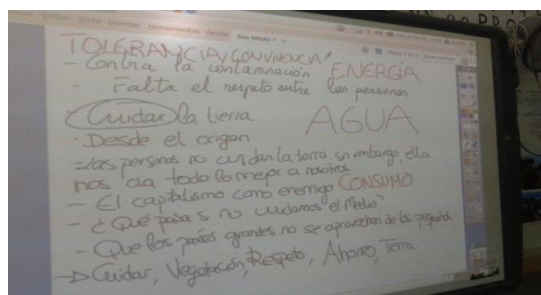 TOLERANCIA/CONVIVENCIA
- Contra la contaminación ENERGÍA
- Falta el respeto entre las personas
Cuidar la tierra AGUA
- Desde el origen
- las personas no cuidan la tierra sin embargo, ella
nos da todo lo mejor a nosotros
- El capitalismo como enemigo CONSUMO
- ¿Qué pasa si no cuidamos el Medio?
- Que los países grandes no se aprovechen de los pequeños
→ Cuidar, Vegetación, Respeto, Ahorro, Tierra